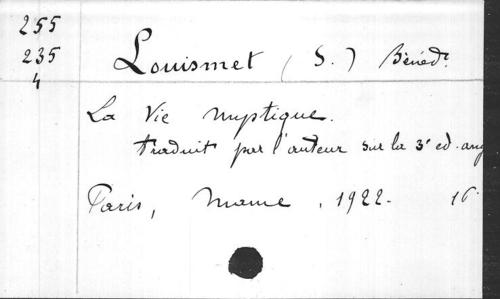 255
235
4
Louismet (S.) Bénédr.
La Vie mystique.
traduit par l'auteur sur la 3e ed. ang
Paris, Mame, 1922. 16